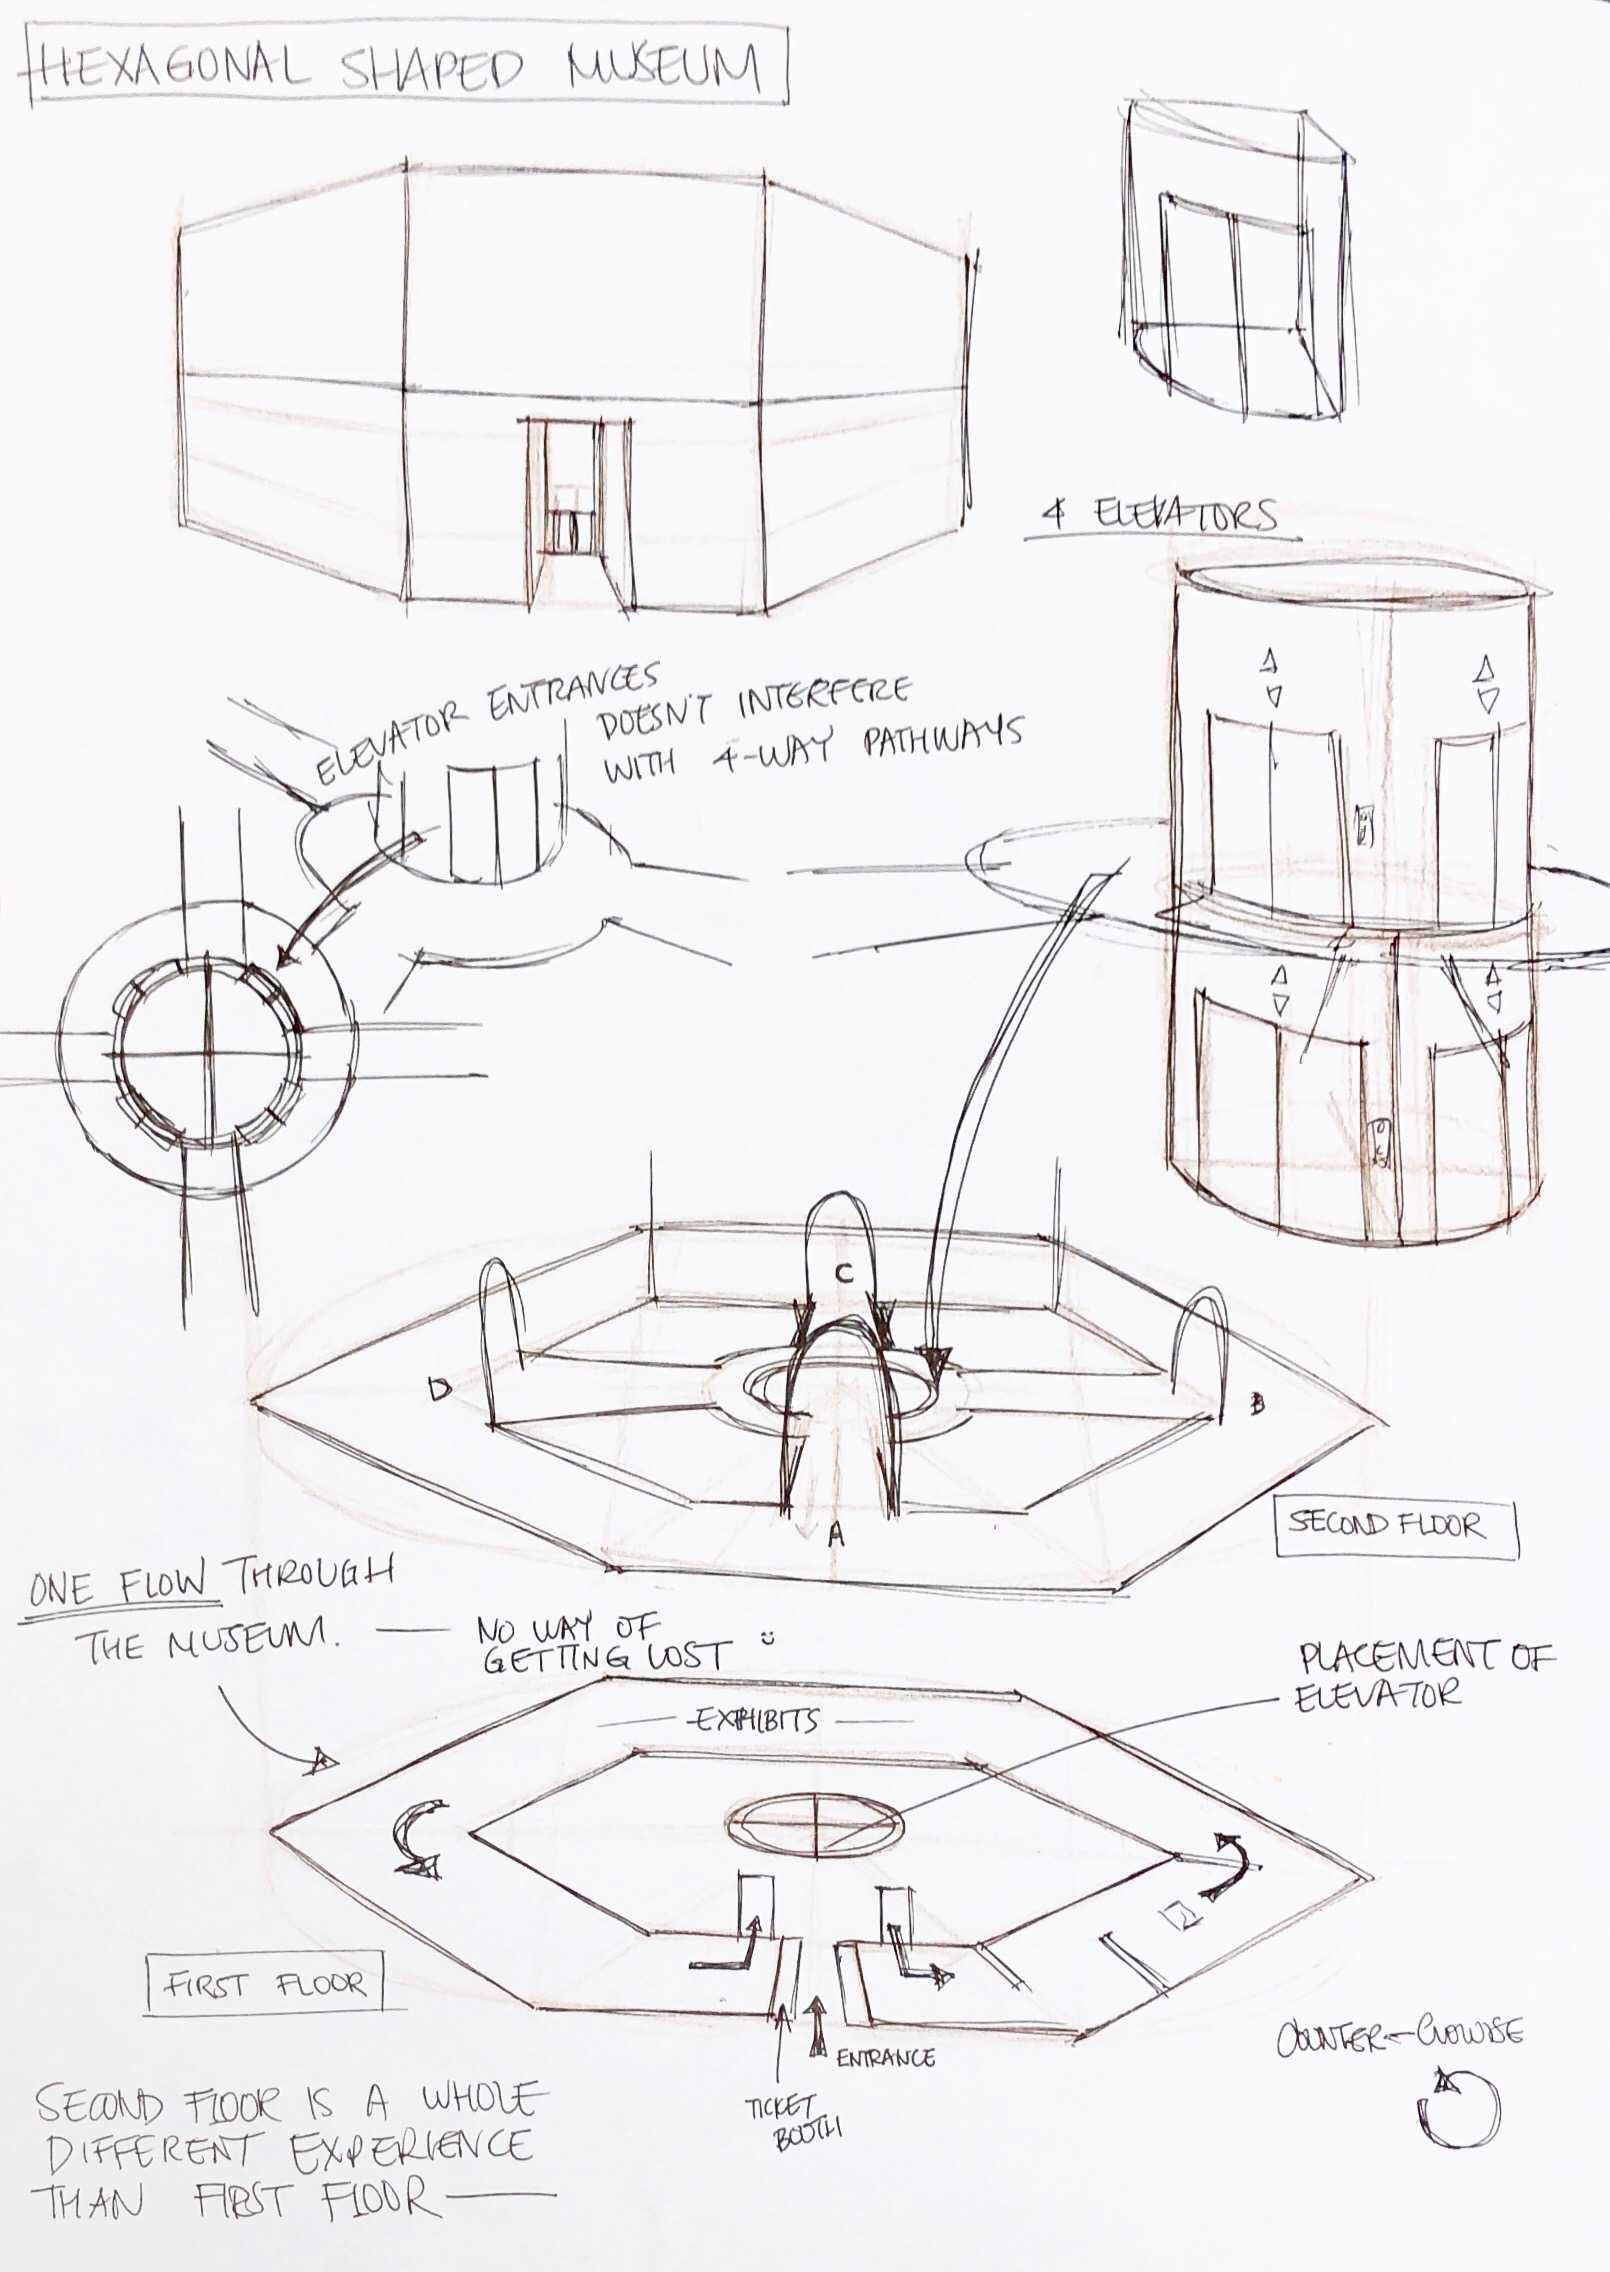 HEXAGONAL SHAPED MUSEUM
4 ELEVATORS
ELEVATOR ENTRANCES
DOESN'T INTERFERE
WITH 4-WAY PATHWAYS
C
D
B
A
SECOND FLOOR
ONE FLOW THROUGH
THE MUSEUM. — NO WAY OF
GETTING LOST
PLACEMENT OF
ELEVATOR
— EXHIBITS —
FIRST FLOOR
ENTRANCE
TICKET
BOOTH
COUNTER-CLOWISE
SECOND FLOOR IS A WHOLE
DIFFERENT EXPERIENCE
THAN FIRST FLOOR —